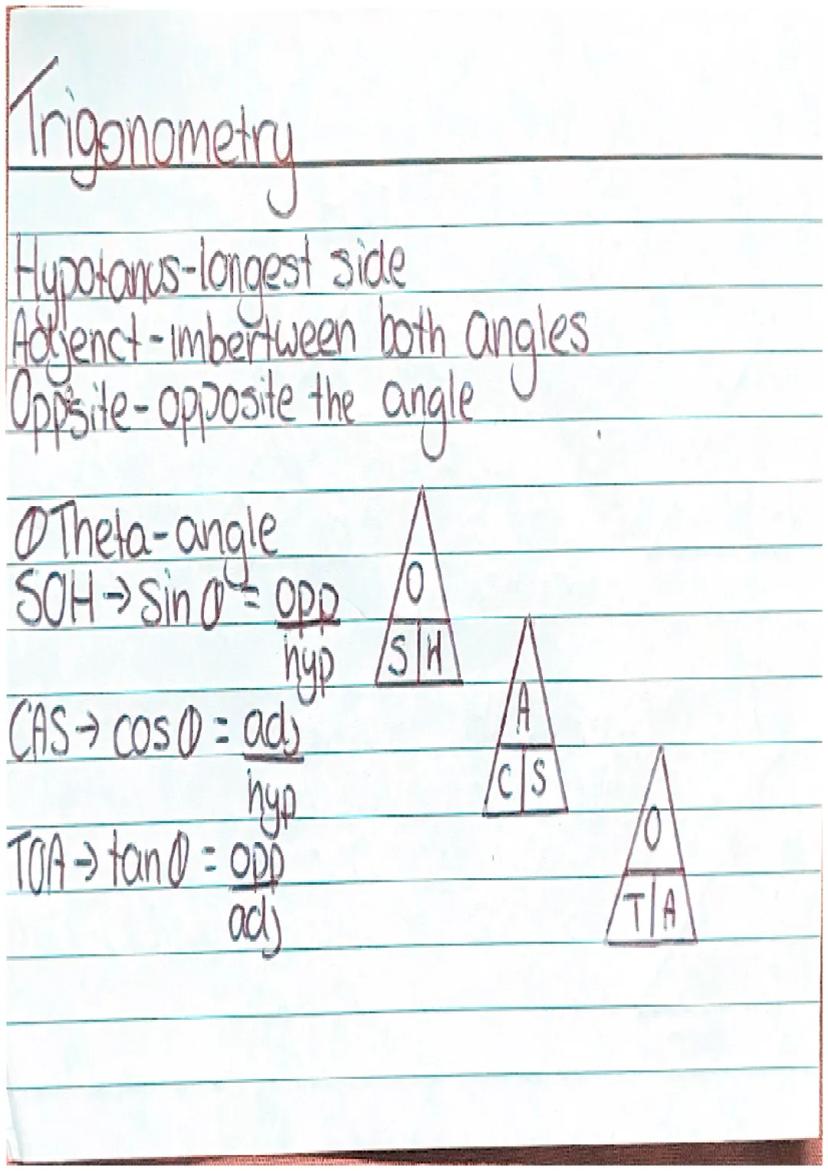 Trigonometry
Hypotanus-longest side
Adjenct-imbertween both angles
Oppsite-opposite the angle
θ Theta-angle
SOH→sinθ = opp
hyp
O
S|H
CAS→cosθ = adj
hyp
A
C|S
TOA→tanθ = opp
adj
O
T|A